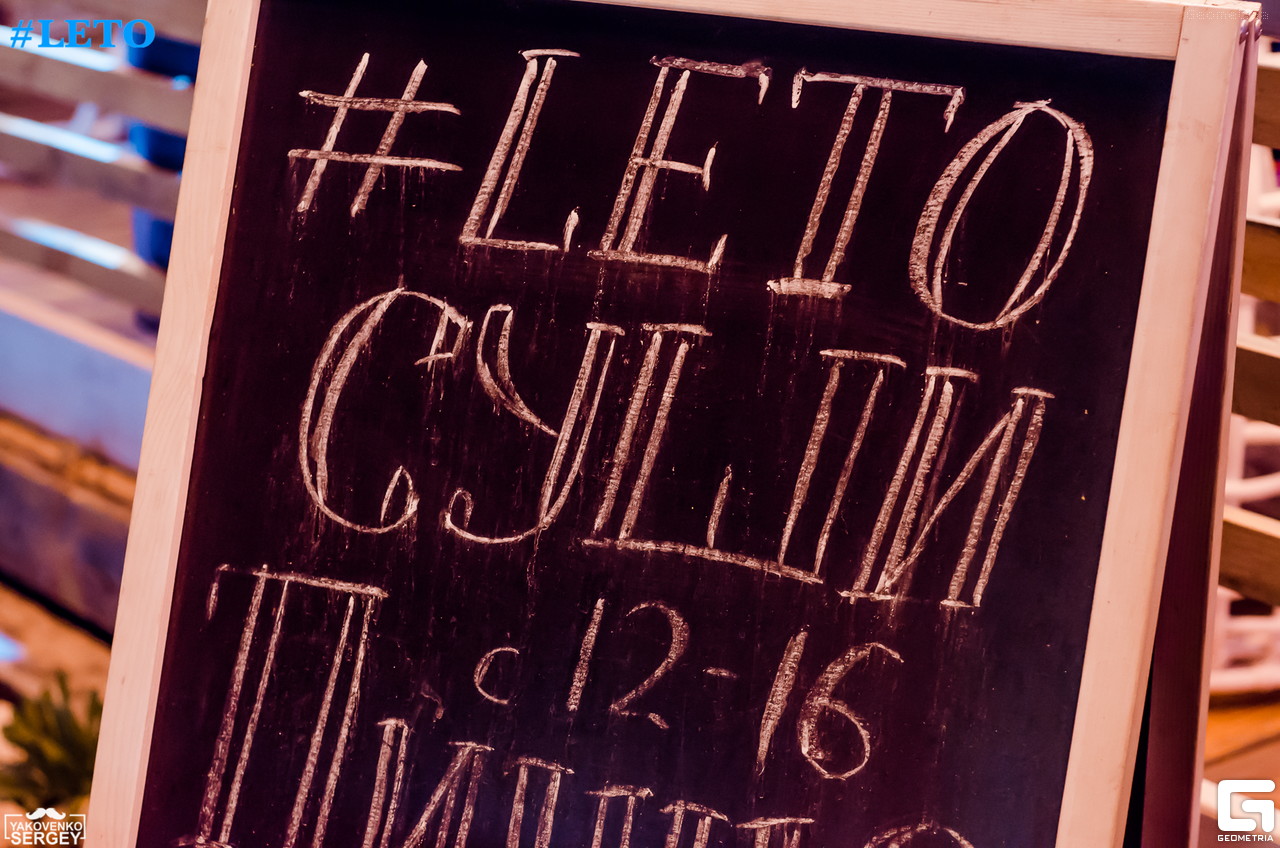 #LETO
#LETO
СУШИ
с 12-16
YAKOVENKO
SERGEY
GEOMETRIA